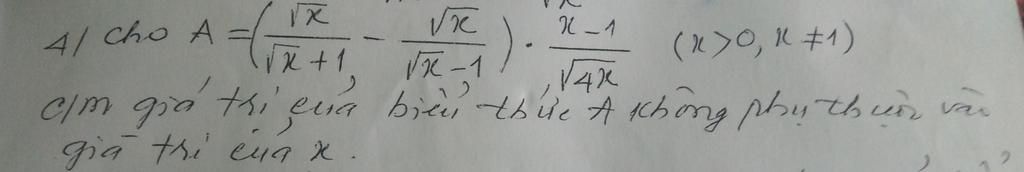 4/ cho A = (√x/(√x+1) - √x/(√x-1)) · (x-1)/√4x (x>0, x≠1)
c/m giá trị của biểu thức A không phụ thuộc vào
giá trị của x.